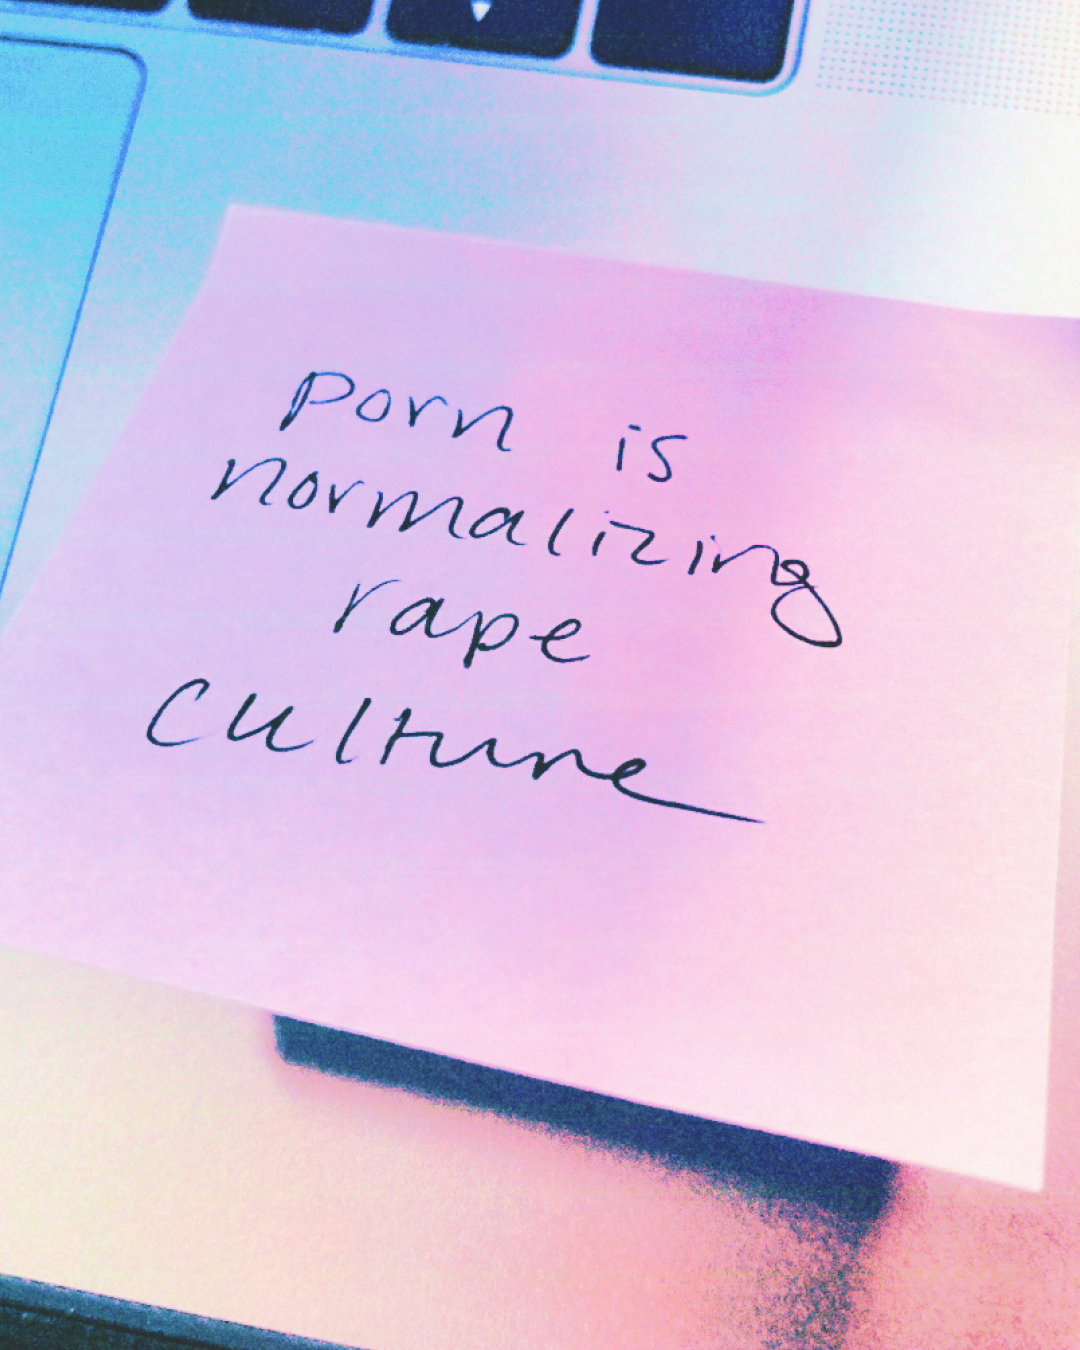 porn is
normalizing
rape
culture